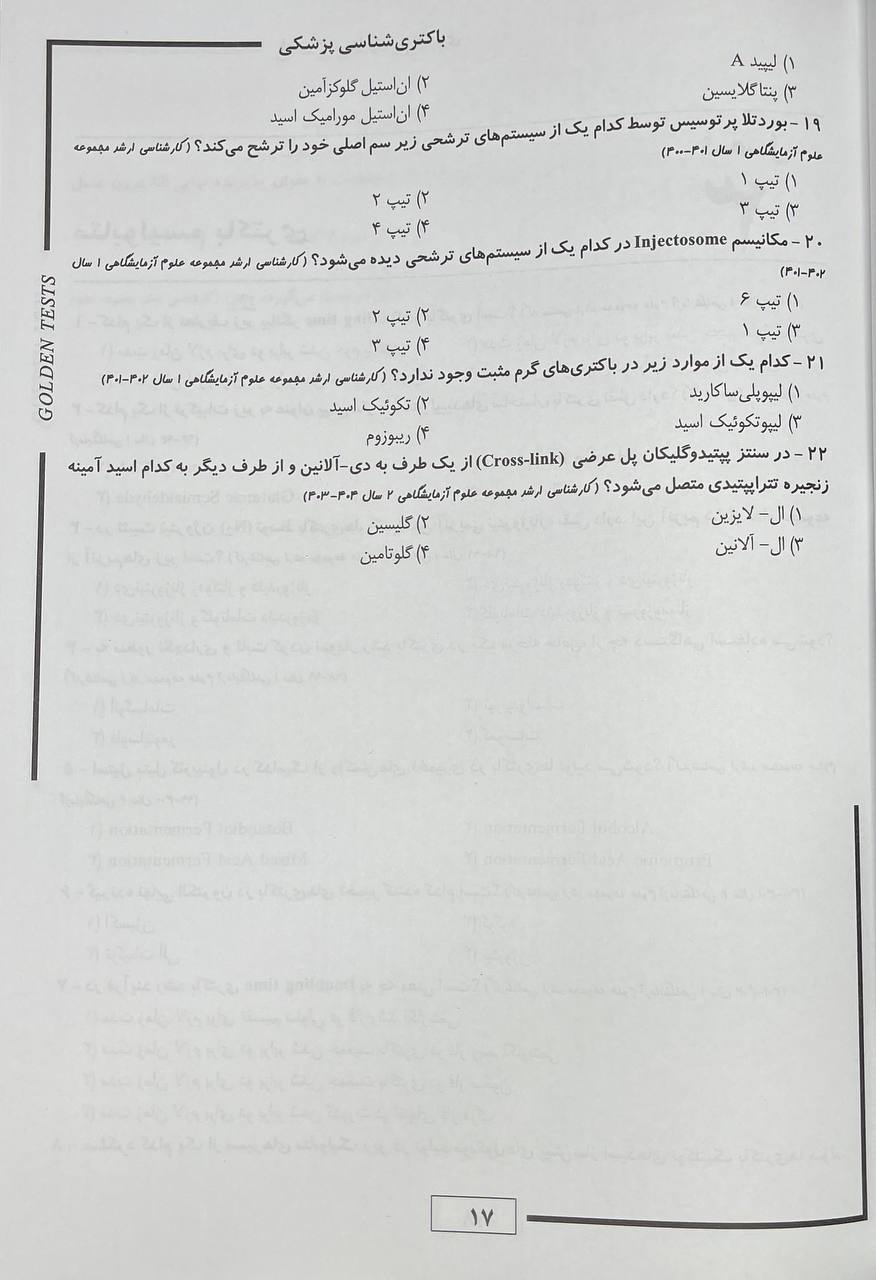 باکتری‌شناسی پزشکی
۱) لیپید A
۲) ان‌استیل گلوکزآمین
۳) پنتاگلایسین
۴) ان‌استیل مورامیک اسید
۱۹ -بوردتلا پرتوسیس توسط کدام یک از سیستم‌های ترشحی زیر سم اصلی خود را ترشح می‌کند؟ (کارشناسی ارشد مجموعه
علوم آزمایشگاهی ۱ سال ۴۰۱-۴۰۰)
۱) تیپ ۱
۲) تیپ ۲
۳) تیپ ۳
۴) تیپ ۴
۲۰ - مکانیسم Injectosome در کدام یک از سیستم‌های ترشحی دیده می‌شود؟ (کارشناسی ارشد مجموعه علوم آزمایشگاهی ۱ سال
۴۰۲-۴۰۱)
۱) تیپ ۶
۲) تیپ ۲
۳) تیپ ۱
۴) تیپ ۳
۲۱ - کدام یک از موارد زیر در باکتری‌های گرم مثبت وجود ندارد؟ (کارشناسی ارشد مجموعه علوم آزمایشگاهی ۱ سال ۴۰۲-۴۰۱)
۱) لیپوپلی‌ساکارید
۲) تکوئیک اسید
۳) لیپوتکوئیک اسید
۴) ریبوزوم
۲۲ - در سنتز پپتیدوگلیکان پل عرضی (Cross-link) از یک طرف به دی-آلانین و از طرف دیگر به کدام اسید آمینه
زنجیره تتراپپتیدی متصل می‌شود؟ (کارشناسی ارشد مجموعه علوم آزمایشگاهی ۲ سال ۴۰۴-۴۰۳)
۱) ال- لایزین
۲) گلیسین
۳) ال- آلانین
۴) گلوتامین
GOLDEN TESTS
۱۷